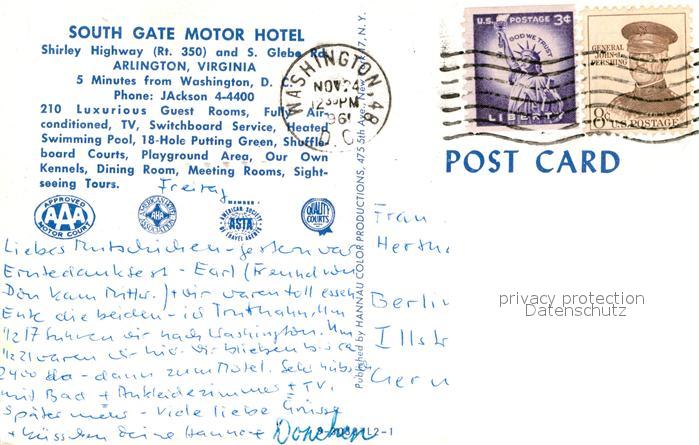 SOUTH GATE MOTOR HOTEL
Shirley Highway (Rt. 350) and S. Glebe Rd.
ARLINGTON, VIRGINIA
5 Minutes from Washington, D. C.
Phone: JAckson 4-4400
210 Luxurious Guest Rooms, Fully Air-
conditioned, TV, Switchboard Service, Heated
Swimming Pool, 18-Hole Putting Green, Shuffle-
board Courts, Playground Area, Our Own
Kennels, Dining Room, Meeting Rooms, Sight-
seeing Tours.
APPROVED
AAA
MOTOR COURT
AMERICAN HOTEL
AHA
ASSOCIATION
MEMBER
AMERICAN SOCIETY
ASTA
OF TRAVEL AGENTS
QUALITY
COURTS
WASHINGTON 48
NOV 24
12 30 PM
D. C.
U.S. POSTAGE 3¢
IN GOD WE TRUST
LIBERTY
GENERAL
JOHN J.
PERSHING
8¢
U.S. POSTAGE
POST CARD
Published by HANNAU COLOR PRODUCTIONS, 475 5th Ave., New York 17, N. Y.
Freitag
Liebes - gestern war
Erntedankfest - Earl (Freund von
Don kam mittw.) + wir waren toll essen
Ente die beiden - ich Truthahn. Um
1/2 17 fuhren wir nach Washington. Um
1/2 21 waren wir hier. Wir blieben bis ca
2400 da - dann zum Motel. Sehr hübsch
mit Bad + Ankleidezimmer + TV.
Später mehr - viele liebe Grüsse
+ Küsschen Deine Hanne +
Frau
Hertha
Berlin
Germ
privacy protection
Datenschutz